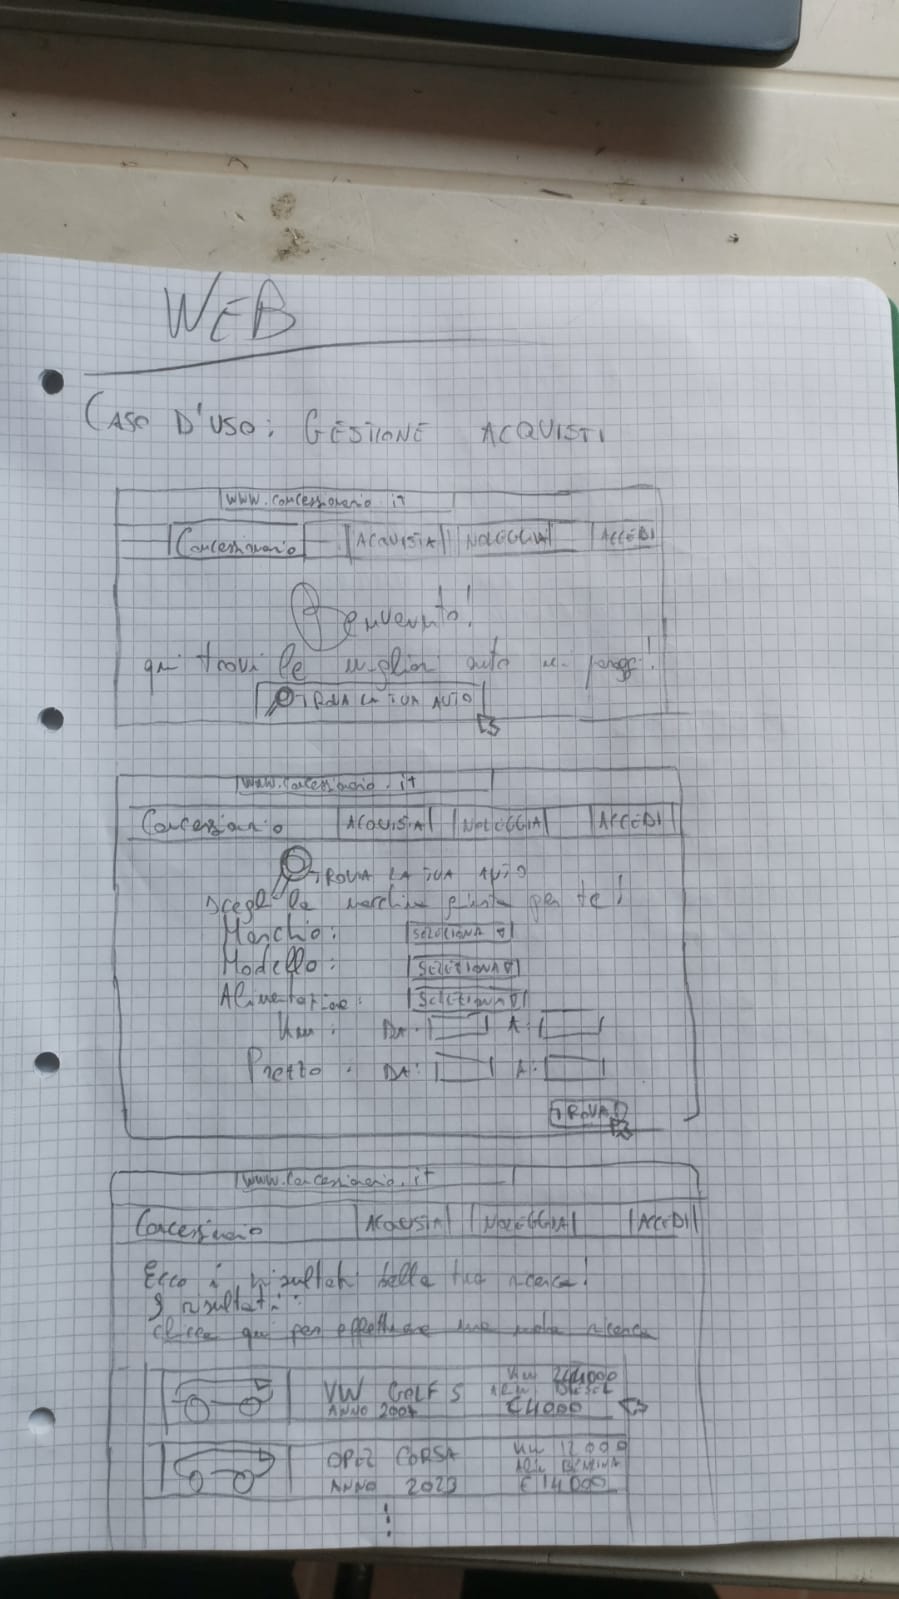 WEB
CASO D'USO: GESTIONE ACQUISTI
www.concessionario.it
Concessionario ACQUISTA NOLEGGIA ACCEDI
Benvenuto!
qui trovi le migliori auto nei paraggi!
TROVA LA TUA AUTO
www.concessionario.it
Concessionario ACQUISTA NOLEGGIA ACCEDI
TROVA LA TUA AUTO
Scegli la macchina giusta per te!
Marchio: SELEZIONA
Modello: SELEZIONA
Alimentazione: SELEZIONA
Km: DA: A:
Prezzo: DA: A:
TROVA
www.concessionario.it
Concessionario ACQUISTA NOLEGGIA ACCEDI
Ecco i risultati della tua ricerca!
risultati:
clicca qui per effettuare una nuova ricerca
VW GOLF 5 KM
ALIM DIESEL
ANNO 2004 €4000
OPEL CORSA KM 12.000
ALIM BENZINA
ANNO 2023 €14000